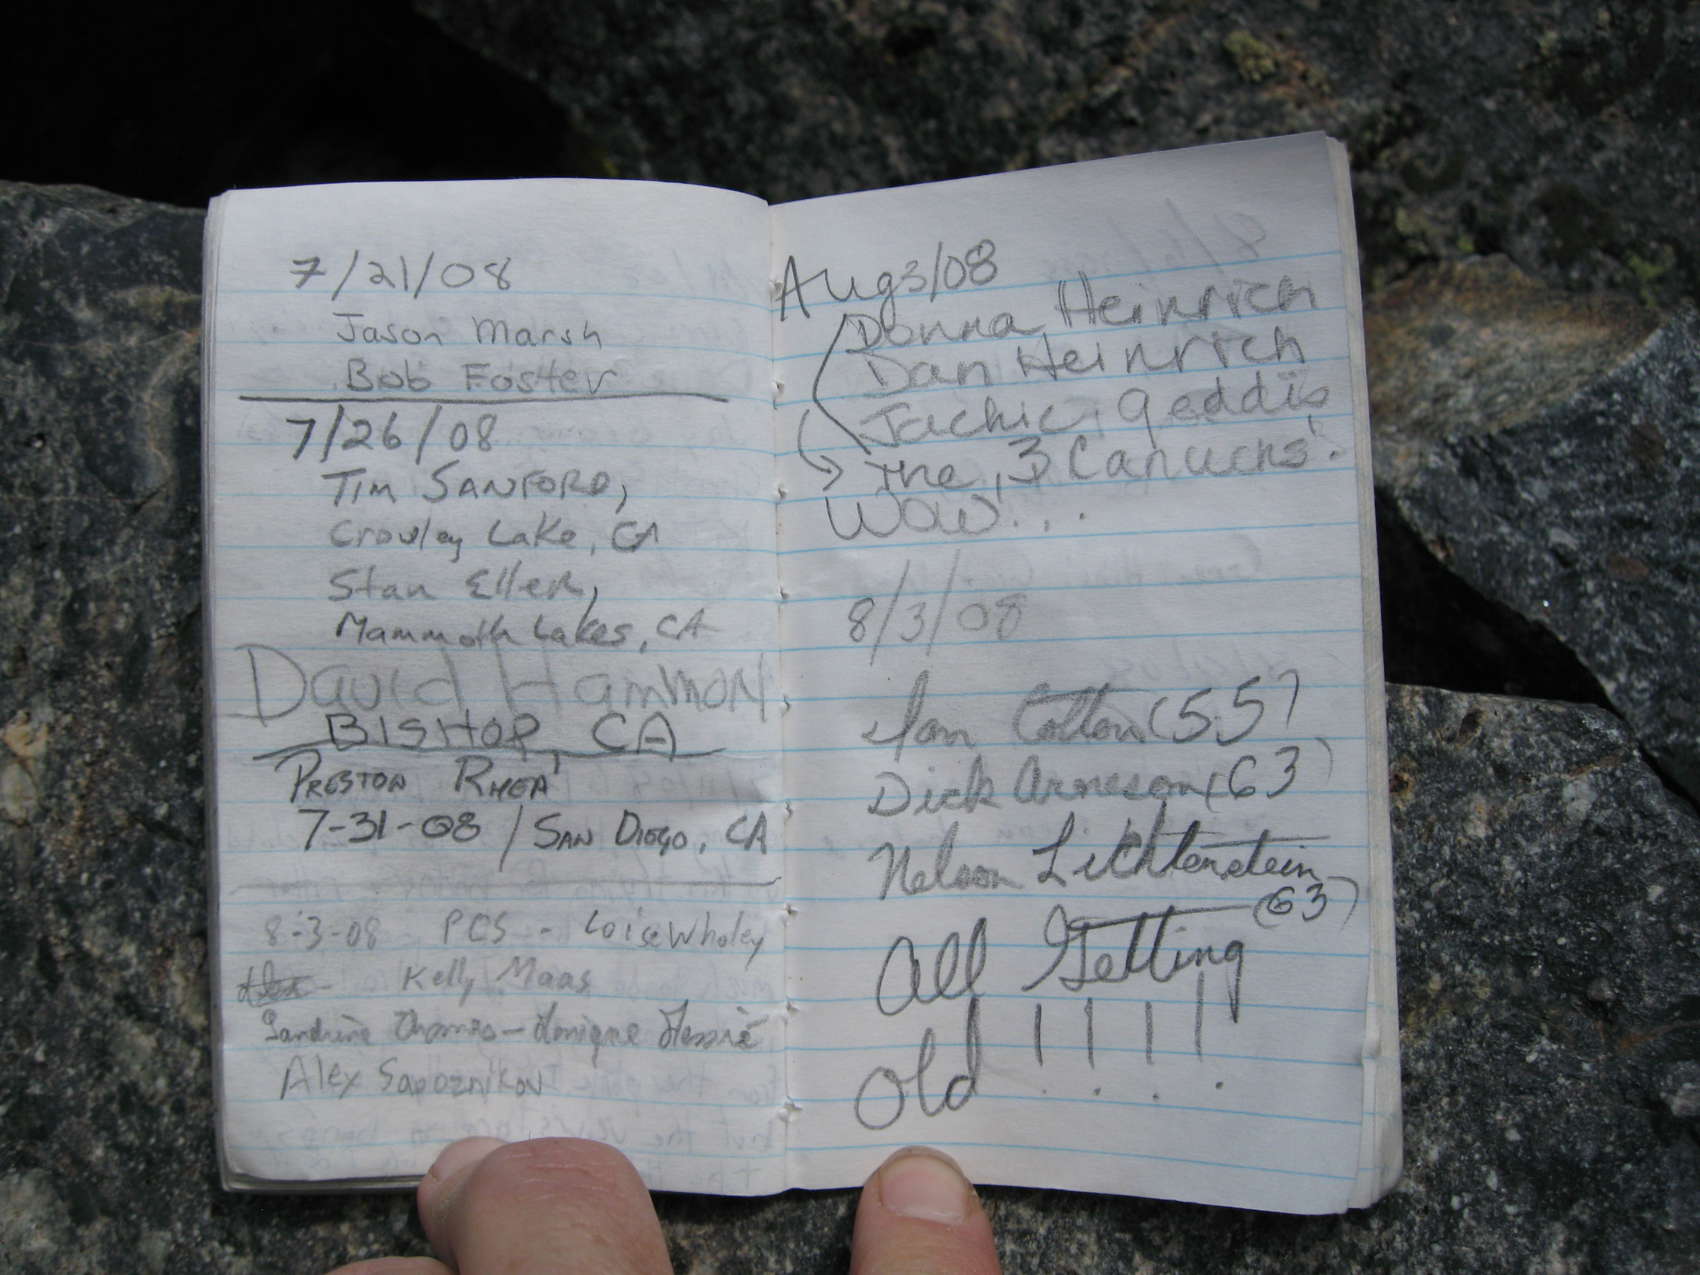 7/21/08
Jason Marsh
Bob Foster
7/26/08
Tim SANFORD,
Crowley Lake, CA
Stan Eller,
Mammoth Lakes, CA
David Hammon,
BISHOP, CA
PRESTON RHEA
7-31-08 / SAN DIEGO, CA
8-3-08 PCS - Loise Wholey
Kelly Maas
Sandrine Thomas - Monique Messié
Alex Sapoznikov
Aug 3/08
Donna Heinrich
Dan Heinrich
Jackie Geddis
The 3 Canucks!
WOW...
8/3/08
Ian Cotton (55)
Dick Arneson (63)
Nelson Lichtenstein
(63)
All Getting
Old !!!!